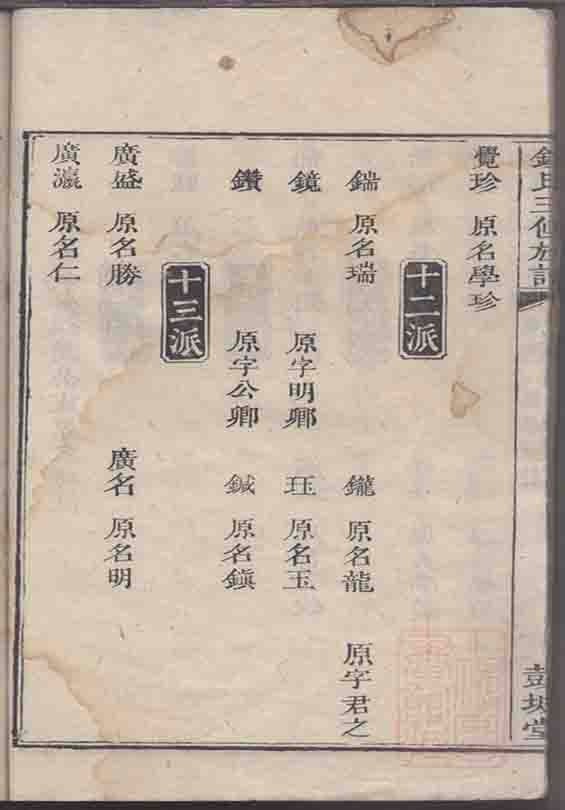 錢氏三修族譜 彭城堂
覺珍 原名學珍
十二派
鍴 原名瑞 鑨 原名龍 原字君之
鏡 原字明卿 珏 原名玉
鑽 原字公卿 鍼 原名鎭
十三派
廣盛 原名勝 廣名 原名明
廣瀛 原名仁